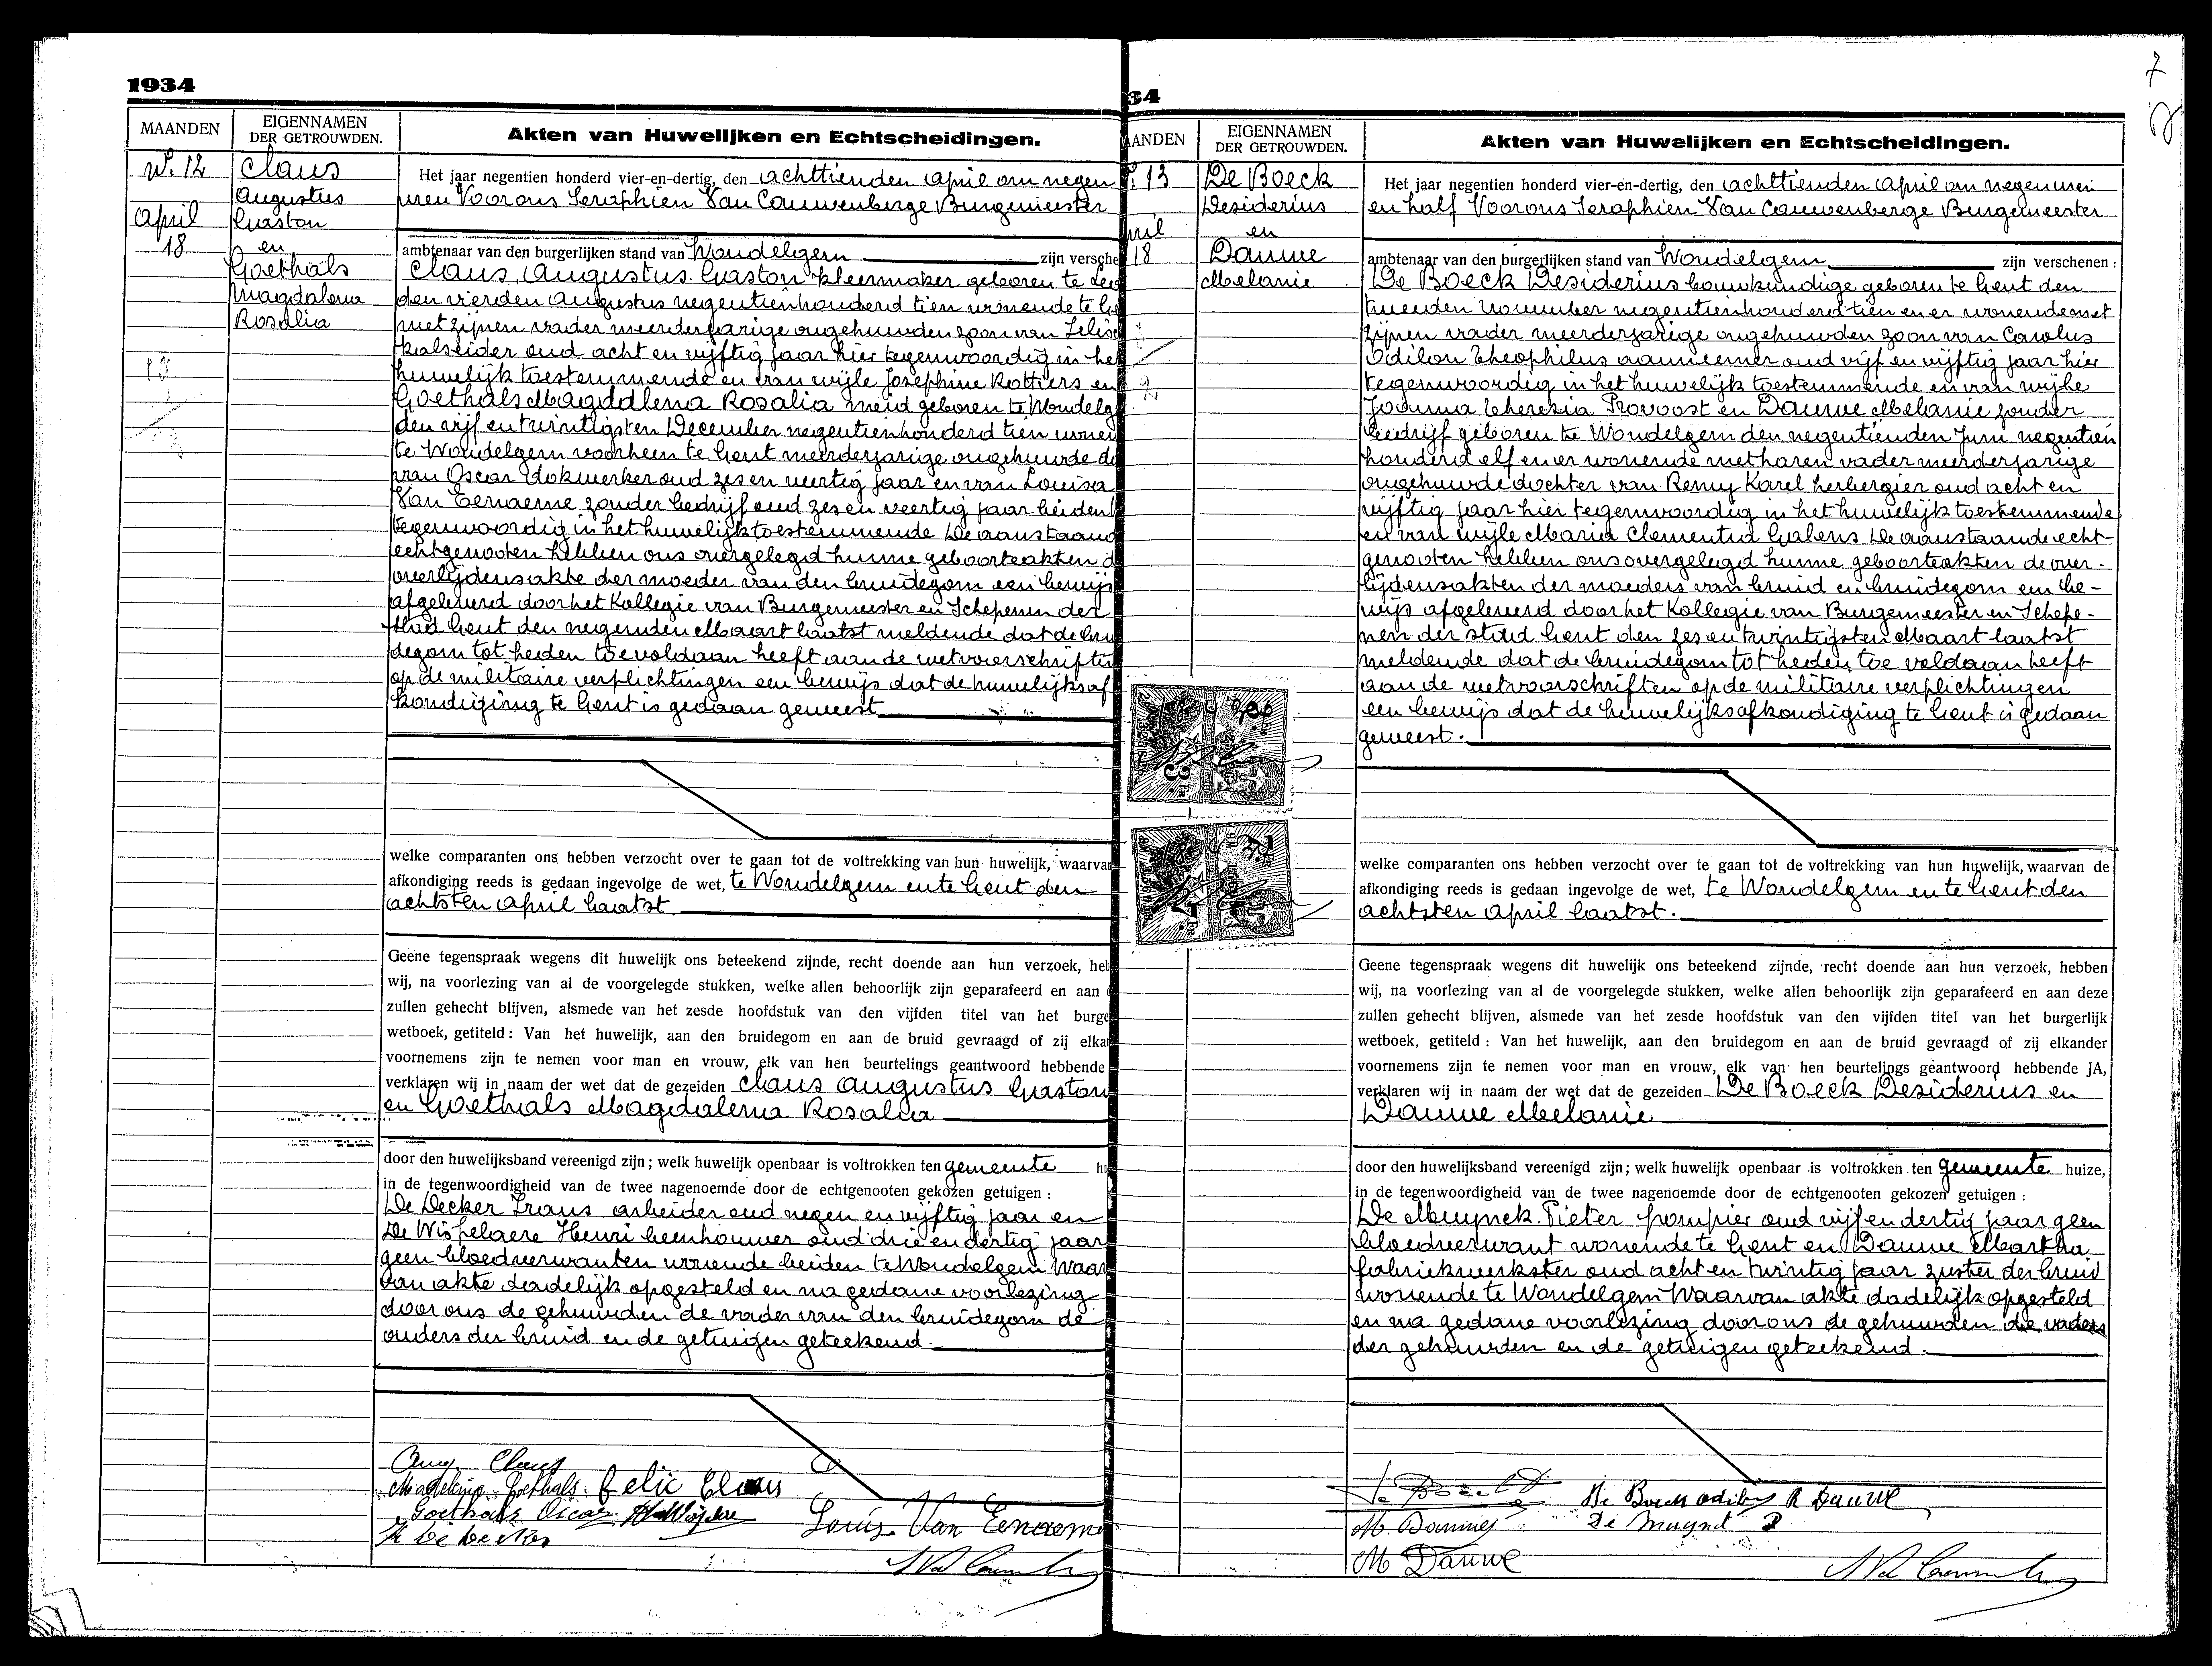 1934
MAANDEN
EIGENNAMEN
DER GETROUWDEN.
Akten van Huwelijken en Echtscheidingen.
N°. 12
April
18
Claus
Augustus
Gaston
en
Goethals
Magdalena
Rosalia
Het jaar negentien honderd vier-en-dertig, den achttienden April om negen
uren Voor ons Seraphien Van Cauwenberge Burgemeester
ambtenaar van den burgerlijken stand van Wondelgem zijn versche
Claus, Augustus Gaston kleermaker geboren te
den vierden Augustus negentienhonderd tien wonende te
met zijnen vader meerderjarige ongehuwden zoon van
kalseider oud acht en vijftig jaar hier tegenwoordig in he
huwelijk toestemmende en van wijle Josephine Rottiers en
Goethals Magdalena Rosalia meid geboren te Wondelg
den vijf en twintigsten December negentienhonderd tien wonen
te Wondelgem voorheen te Gent meerderjarige ongehuwde do
van Oscar dokwerker oud zes en veertig jaar en van Louisa
Van Eenaeme zonder bedrijf oud zes en veertig jaar beiden
tegenwoordig in het huwelijk toestemmende De aanstaand
echtgenooten hebben ons overgelegd hunne geboorteakten d
overlijdensakte der moeder van den bruidegom een bewijs
afgeleverd door het Kollegie van Burgemeester en Schepenen der
stad Gent den negenden Maart laatst meldende dat de brui
degom tot heden toe voldaan heeft aan de wetvoorschriften
op de militaire verplichtingen een bewijs dat de huwelijksaf
kondiging te Gent is gedaan geweest
welke comparanten ons hebben verzocht over te gaan tot de voltrekking van hun huwelijk, waarvan
afkondiging reeds is gedaan ingevolge de wet, te Wondelgem en te Gent den
achtsten April laatst.
Geene tegenspraak wegens dit huwelijk ons beteekend zijnde, recht doende aan hun verzoek, heb
wij, na voorlezing van al de voorgelegde stukken, welke allen behoorlijk zijn geparafeerd en aan d
zullen gehecht blijven, alsmede van het zesde hoofdstuk van den vijfden titel van het burge
wetboek, getiteld : Van het huwelijk, aan den bruidegom en aan de bruid gevraagd of zij elkan
voornemens zijn te nemen voor man en vrouw, elk van hen beurtelings geantwoord hebbende
verklaren wij in naam der wet dat de gezeiden Claus Augustus Gaston
en Goethals Magdalena Rosalia
door den huwelijksband vereenigd zijn ; welk huwelijk openbaar is voltrokken ten gemeente hu
in de tegenwoordigheid van de twee nagenoemde door de echtgenooten gekozen getuigen :
De Decker Frans arbeider oud negen en vijftig jaar en
De Wispelaere Henri beenhouwer oud drie en dertig jaar
geen bloedverwanten wonende beiden te Wondelgem Waar
van akte dadelijk opgesteld en na gedane voorlezing
door ons de gehuwden de vader van den bruidegom de
ouders der bruid en de getuigen geteekend.
Aug. Claus
Madeleine Goethals Felic Claus
Goethals Oscar
Louis. Van Eenaeme
34
AANDEN
EIGENNAMEN
DER GETROUWDEN.
Akten van Huwelijken en Echtscheidingen.
7
°. 13
pril
18
De Boeck
Desiderius
en
Dauwe
Melanie
Het jaar negentien honderd vier-en-dertig, den achttienden April om negen uren
en half Voor ons Seraphien Van Cauwenberge Burgemeester
ambtenaar van den burgerlijken stand van Wondelgem zijn verschenen :
De Boeck Desiderius bouwkundige geboren te Gent den
tweeden November negentienhonderd tien en er wonende met
zijnen vader meerderjarige ongehuwden zoon van Carolus
Odilon Theophilus aannemer oud vijf en vijftig jaar hier
tegenwoordig in het huwelijk toestemmende en van wijle
Joanna Therezia Provoost en Dauwe Melanie zonder
bedrijf geboren te Wondelgem den negentienden Juni negentien
honderd elf en er wonende met haren vader meerderjarige
ongehuwde dochter van Remy Karel herbergier oud acht en
vijftig jaar hier tegenwoordig in het huwelijk toestemmende
en van wijle Maria Clementia Galens De aanstaande echt-
genooten hebben ons overgelegd hunne geboorteakten de over-
lijdensakten der moeders van bruid en bruidegom een be-
wijs afgeleverd door het Kollegie van Burgemeester en Schepe-
nen der stad Gent den zes en twintigsten Maart laatst
meldende dat de bruidegom tot heden toe voldaan heeft
aan de wetvoorschriften op de militaire verplichtingen
een bewijs dat de huwelijksafkondiging te Gent is gedaan
geweest.
welke comparanten ons hebben verzocht over te gaan tot de voltrekking van hun huwelijk, waarvan de
afkondiging reeds is gedaan ingevolge de wet, te Wondelgem en te Gent den
achtsten April laatst.
Geene tegenspraak wegens dit huwelijk ons beteekend zijnde, recht doende aan hun verzoek, hebben
wij, na voorlezing van al de voorgelegde stukken, welke allen behoorlijk zijn geparafeerd en aan deze
zullen gehecht blijven, alsmede van het zesde hoofdstuk van den vijfden titel van het burgerlijk
wetboek, getiteld : Van het huwelijk, aan den bruidegom en aan de bruid gevraagd of zij elkander
voornemens zijn te nemen voor man en vrouw, elk van hen beurtelings geantwoord hebbende JA,
verklaren wij in naam der wet dat de gezeiden De Boeck Desiderius en
Dauwe Melanie
door den huwelijksband vereenigd zijn ; welk huwelijk openbaar is voltrokken ten gemeente huize,
in de tegenwoordigheid van de twee nagenoemde door de echtgenooten gekozen getuigen :
De Muynck Pieter pompier oud vijf en dertig jaar geen
bloedverwant wonende te Gent en Dauwe Martha
fabriekwerkster oud acht en twintig jaar zuster der bruid
wonende te Wondelgem Waarvan akte dadelijk opgesteld
en na gedane voorlezing door ons de gehuwden de vaders
der gehuwden en de getuigen geteekend.
De Boeck D.
De Boeck Odilon R Dauwe
M. Dauwe
De Muynck P
M Dauwe